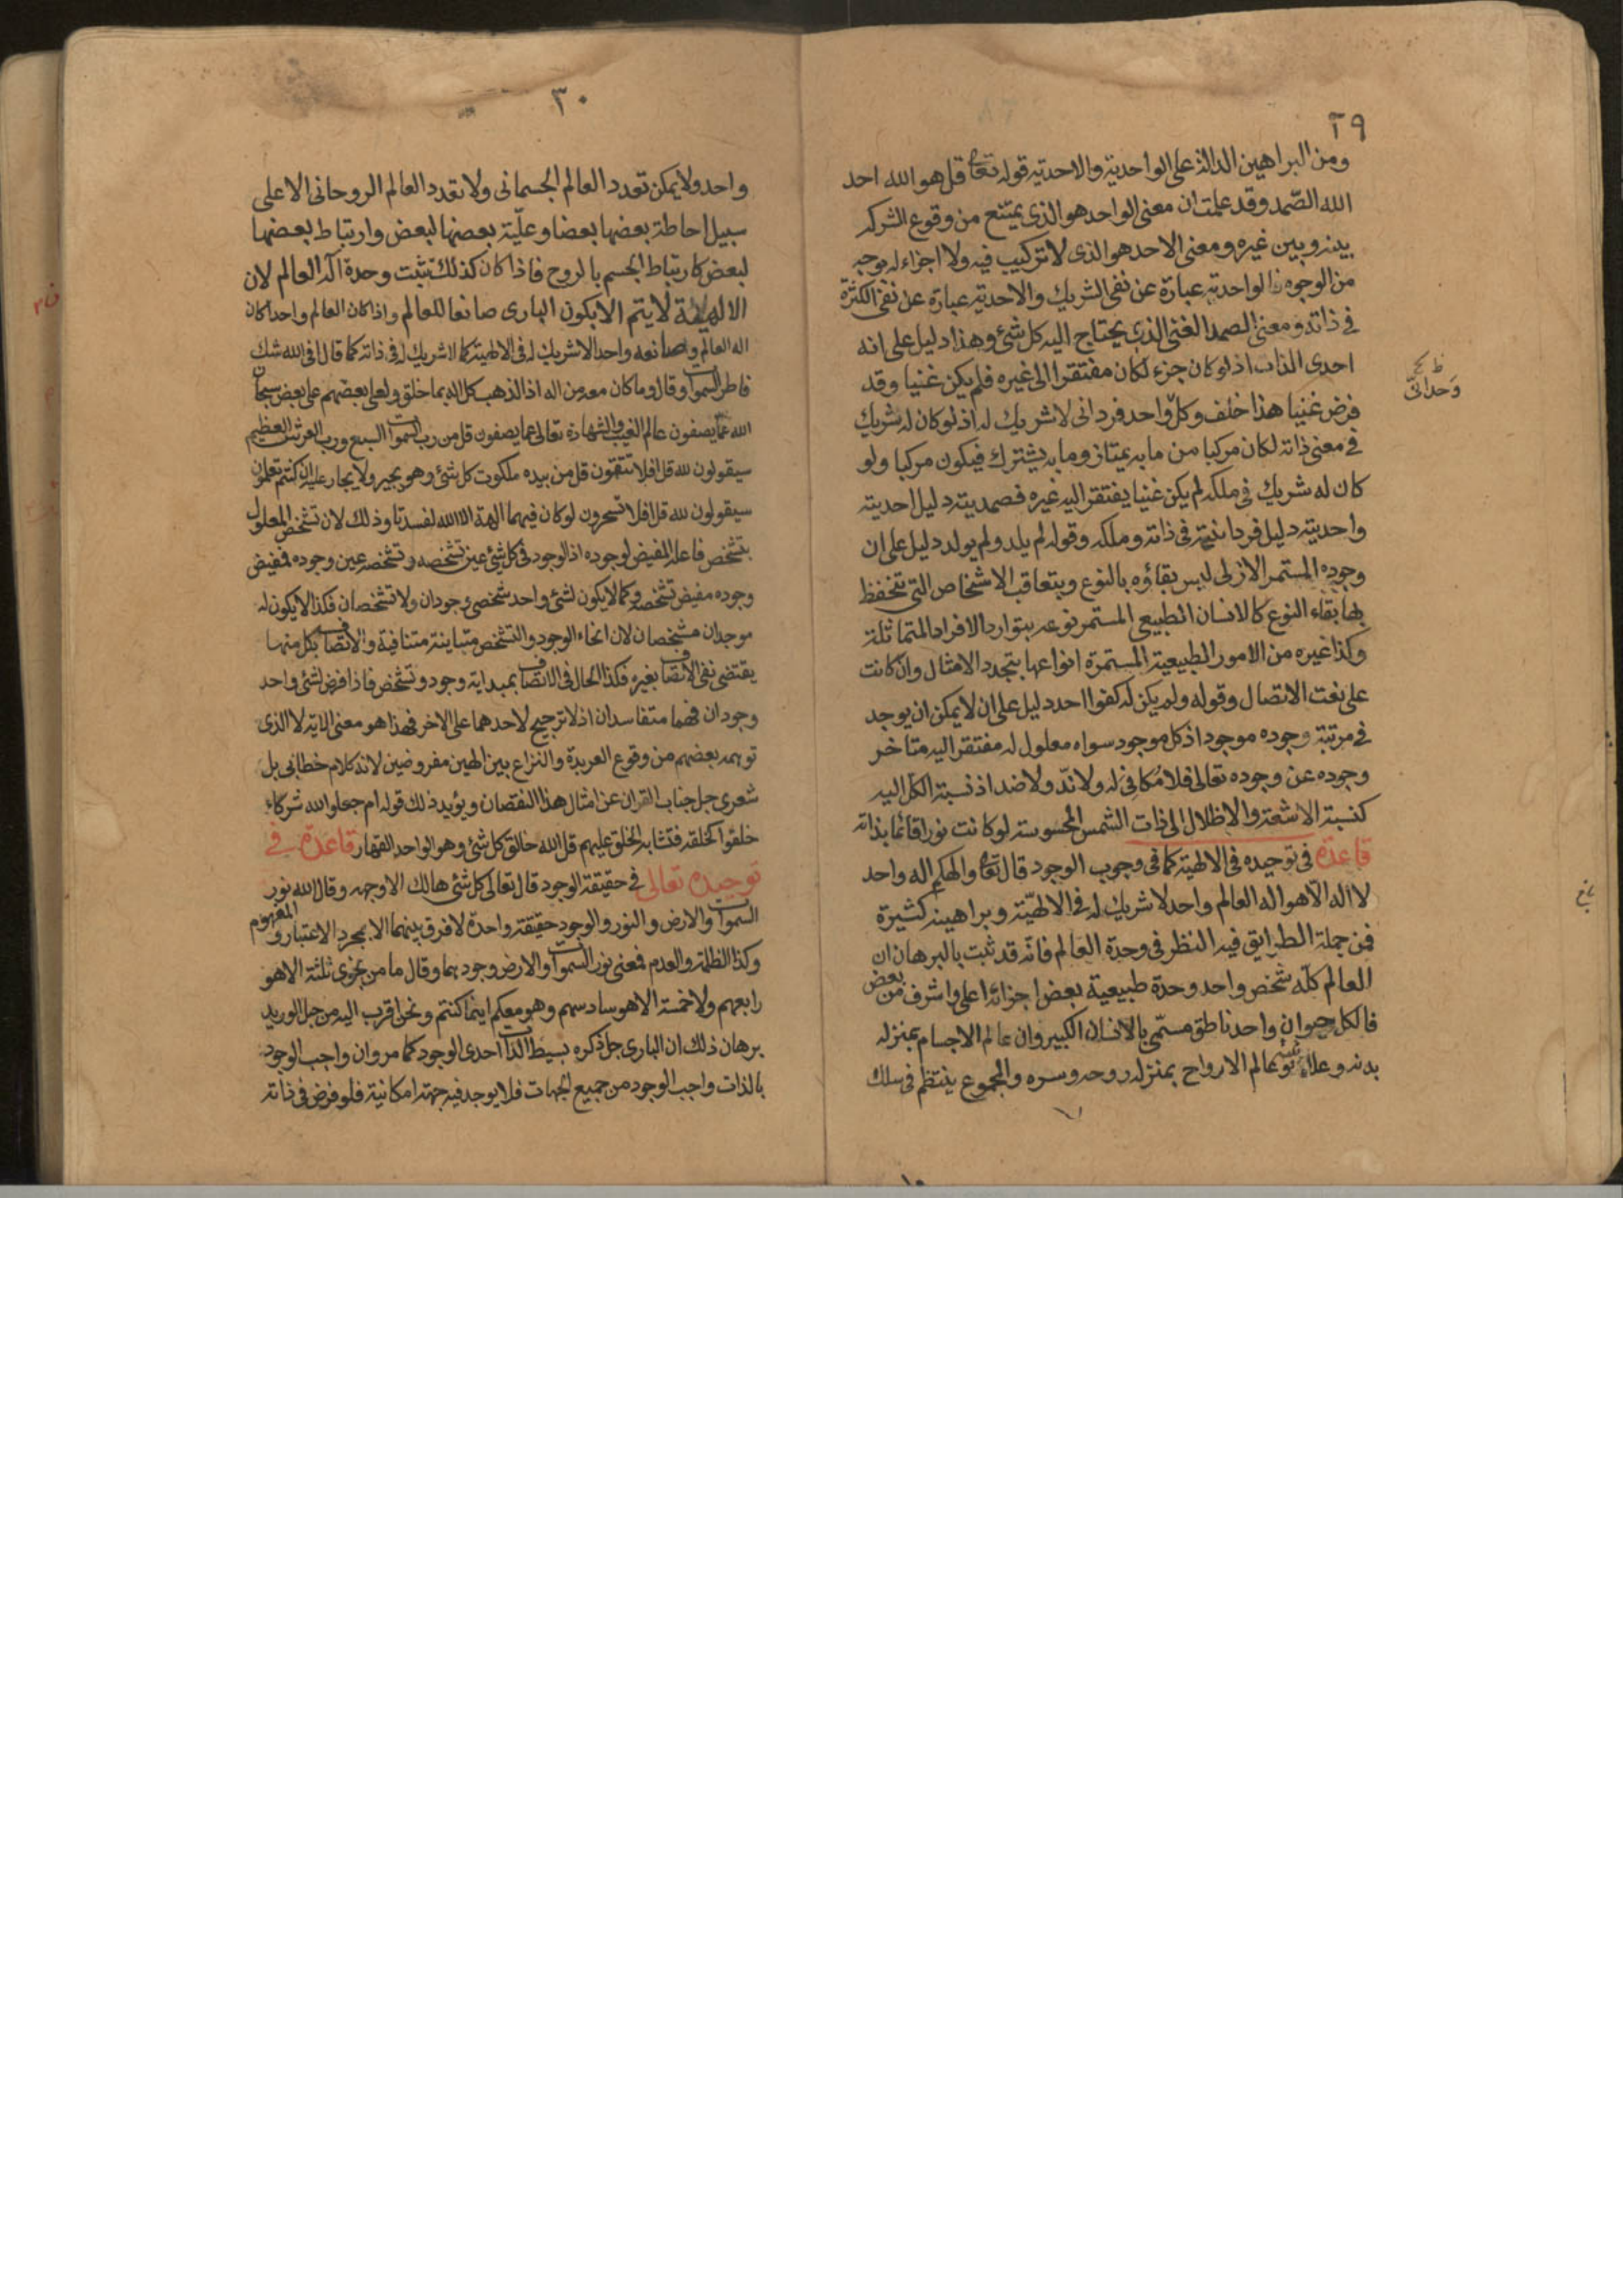 ٢٩
ومن البراهين الدالة على الواحدية والاحدية قوله تعا قل هو الله احد
الله الصّمد وقد علمت ان معنى الواحد هو الذى يمتنع من وقوع الشركة
بينه وبين غيره ومعنى الاحد هو الذى لا تركيب فيه ولا اجزاء له بوجه
من الوجوه فالواحدية عبارة عن نفى الشريك والاحدية عبارة عن نفى الكثرة
فى ذاته ومعنى الصمد الغنى الذى يحتاج اليه كل شئ وهذا دليل على انه
احدى الذات اذ لو كان جزء لكان مفتقرا الى غيره فلم يكن غنيا وقد
فرض غنيا هذا خلف وكل واحد فردانى لا شريك له اذ لو كان له شريك
فى معنى ذاته لكان مركبا من ما به يمتاز وما به يشترك فيكون مركبا ولو
كان له شريك فى ملكه لم يكن غنيا يفتقر اليه غيره فصمديته دليل احديته
واحديته دليل فردانيته فى ذاته وملكه وقوله لم يلد ولم يولد دليل على ان
وجوده المستمر الازلى ليس بقاؤه بالنوع وبتعاقب الاشخاص التى تنحفظ
بها بقاء النوع كالانسان الطبيعى المستمر نوعه بتوارد الافراد المتماثلة
وكذا غيره من الامور الطبيعية المستمرة انواعها بتجدد الامثال وان كانت
على نعت الاتصال وقوله ولم يكن له كفوا احد دليل على ان لا يمكن ان يوجد
فى مرتبة وجوده موجود اذ كل موجود سواه معلول له مفتقر اليه متاخر
وجوده عن وجوده تعالى فلا مكافئ له ولا ندّ ولا ضد اذ نسبة الكل اليه
كنسبة الاشعة والاظلال الى ذات الشمس المحسوسة لو كانت نورا قائما بذاته
قاعدة فى توحيده فى الالهية كما فى وجوب الوجود قال تعا والهكم اله واحد
لا اله الا هو اله العالم واحد لا شريك له فى الالهيّة وبراهينه كثيرة
فمن جملة الطرايق فيه النظر فى وحدة العالم فانّه قد ثبت بالبرهان ان
العالم كلّه شخص واحد وحدة طبيعية بعض اجزائه اعلى واشرف من بعض
فالكل حيوان واحد ناطق مسمّى بالانسان الكبير وان عالم الاجسام بمنزلة
بدنه وعالم الارواح بمنزلة روحه وسره والمجموع ينتظم فى سلك
ظ
وَحدانىّ
٣٠
واحد ولا يمكن تعدد العالم الجسمانى ولا تعدد العالم الروحانى الا على
سبيل احاطة بعضها بعضا وعلّية بعضها لبعض وارتباط بعضها
لبعض كارتباط الجسم بالروح فاذا كان كذلك تثبت وحدة اله العالم لان
الالهية لا يتم الا بكون البارى صانعا للعالم واذا كان العالم واحدا كان
اله العالم وصانعه واحدا لا شريك له فى الالهية كما لا شريك له فى ذاته كما قال افى الله شك
فاطر السموات وقال وما كان معه من اله اذا لذهب كل اله بما خلق ولعلى بعضهم على بعض سبحان
الله عمّا يصفون عالم الغيب والشهادة تعالى عما يصفون قل من رب السموات السبع ورب العرش العظيم
سيقولون لله قل افلا تتقون قل من بيده ملكوت كل شئ وهو يجير ولا يجار عليه ان كنتم تعلمون
سيقولون لله قل افلا تسحرون لو كان فيهما الهة الا الله لفسدتا وذلك لان تشخص المعلول
بتشخص فاعله المفيض لوجوده اذ الوجود فى كل شئ عين تشخصه وتشخصه عين وجوده فمفيض
وجوده مفيض تشخصه وكما لا يكون لشئ واحد شخصى وجودان ولا تشخصان فكذا لا يكون له
موجدان مشخصان لان انحاء الوجود والتشخص متباينة متنافية والاتصاف بكل منها
يقتضى نفى الاتصاف بغيره فكذا الحال فى الاتصاف بمبداية وجود وتشخص فاذا فرض لشئ واحد
وجودان فهما متفاسدان اذ لا ترجيح لاحدهما على الاخر فهذا هو معنى الاية لا الذى
توهمه بعضهم من وقوع العربدة والنزاع بين الهين مفروضين لانه كلام خطابى بل
شعرى جل جناب القران عن امثال هذا النقصان ويؤيد ذلك قوله ام جعلوا لله شركاء
خلقوا كخلقه فتشابه الخلق عليهم قل الله خالق كل شئ وهو الواحد القهار قاعدة فى
توحيده تعالى فى حقيقة الوجود قال تعالى كل شئ هالك الا وجهه وقال الله نور
السموات والارض والنور والوجود حقيقة واحدة لا فرق بينهما الا بمجرد الاعتبار والمفهوم
وكذا الظلمة والعدم فمعنى نور السموات والارض وجودهما وقال ما من نجوى ثلثة الا هو
رابعهم ولا خمسة الا هو سادسهم وهو معكم اينما كنتم ونحن اقرب اليه من حبل الوريد
برهان ذلك ان البارى جل ذكره بسيط الذات احدى الوجود كما مر وان واجب الوجود
بالذات واجب الوجود من جميع الجهات فلا يوجد فيه جهة امكانية فلو فرض فى ذاته